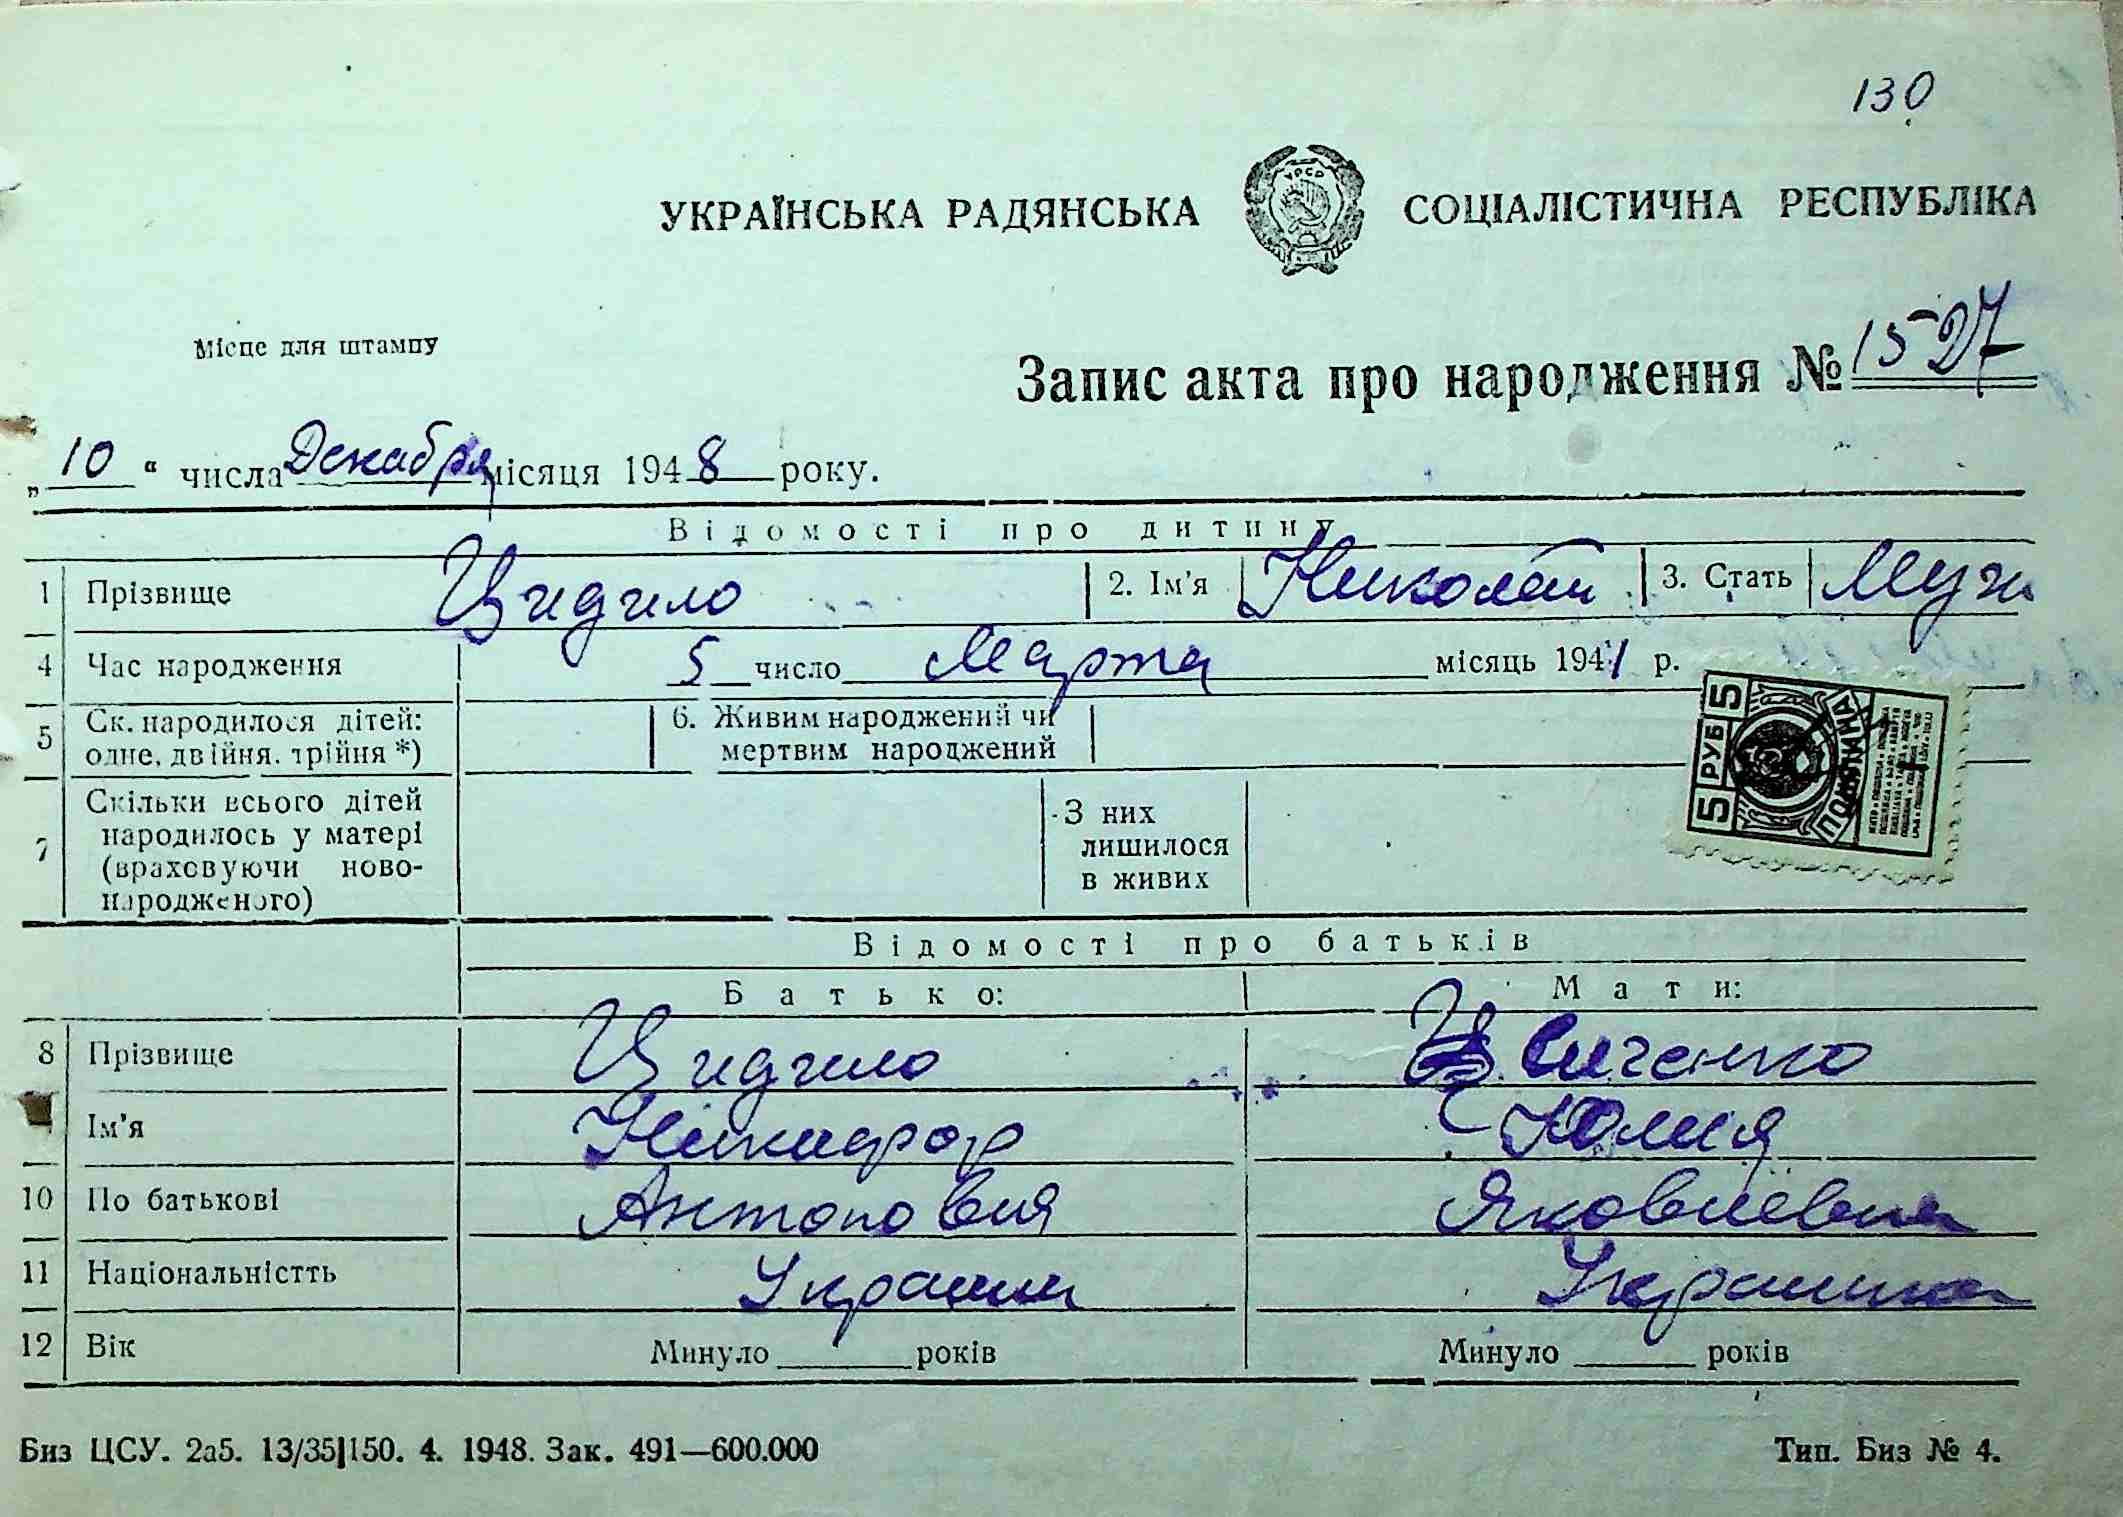 130
УКРАЇНСЬКА РАДЯНСЬКА СОЦІАЛІСТИЧНА РЕСПУБЛІКА
УРСР
Місце для штампу
Запис акта про народження № 1527
„10“ числа Декабря місяця 1948 року.
Відомості про дитину
1 Прізвище Цидило 2. Ім'я Николай 3. Стать Муж.
4 Час народження 5 число Марта місяць 1941 р.
5 Ск. народилося дітей: одне, двійня, трійня *) 6. Живим народжений чи мертвим народжений
7 Скільки всього дітей народилось у матері (враховуючи новонародженого) З них лишилося в живих
5 РУБ 5
Відомості про батьків
Батько: Мати:
8 Прізвище Цидило Сиченко
Ім'я Никифор Юлия
10 По батькові Антонович Яковлевна
11 Національністть Украинец Украинка
12 Вік Минуло ____ років Минуло ____ років
Биз ЦСУ. 2а5. 13/35|150. 4. 1948. Зак. 491—600.000 Тип. Биз № 4.